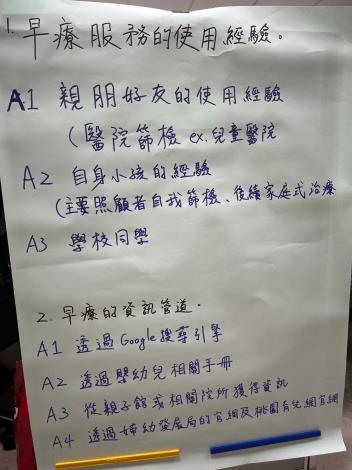 1. 早療服務的使用經驗。
A1 親朋好友的使用經驗
(醫院篩檢 ex.兒童醫院
A2 自身小孩的經驗
(主要照顧者自我篩檢、後續家庭式治療
A3 學校同學
2. 早療的資訊管道。
A1 透過Google搜尋引擎
A2 透過嬰幼兒相關手冊
A3 從親子館或相關院所獲得資訊
A4 透過婦幼發展局的官網及桃園育兒網官網